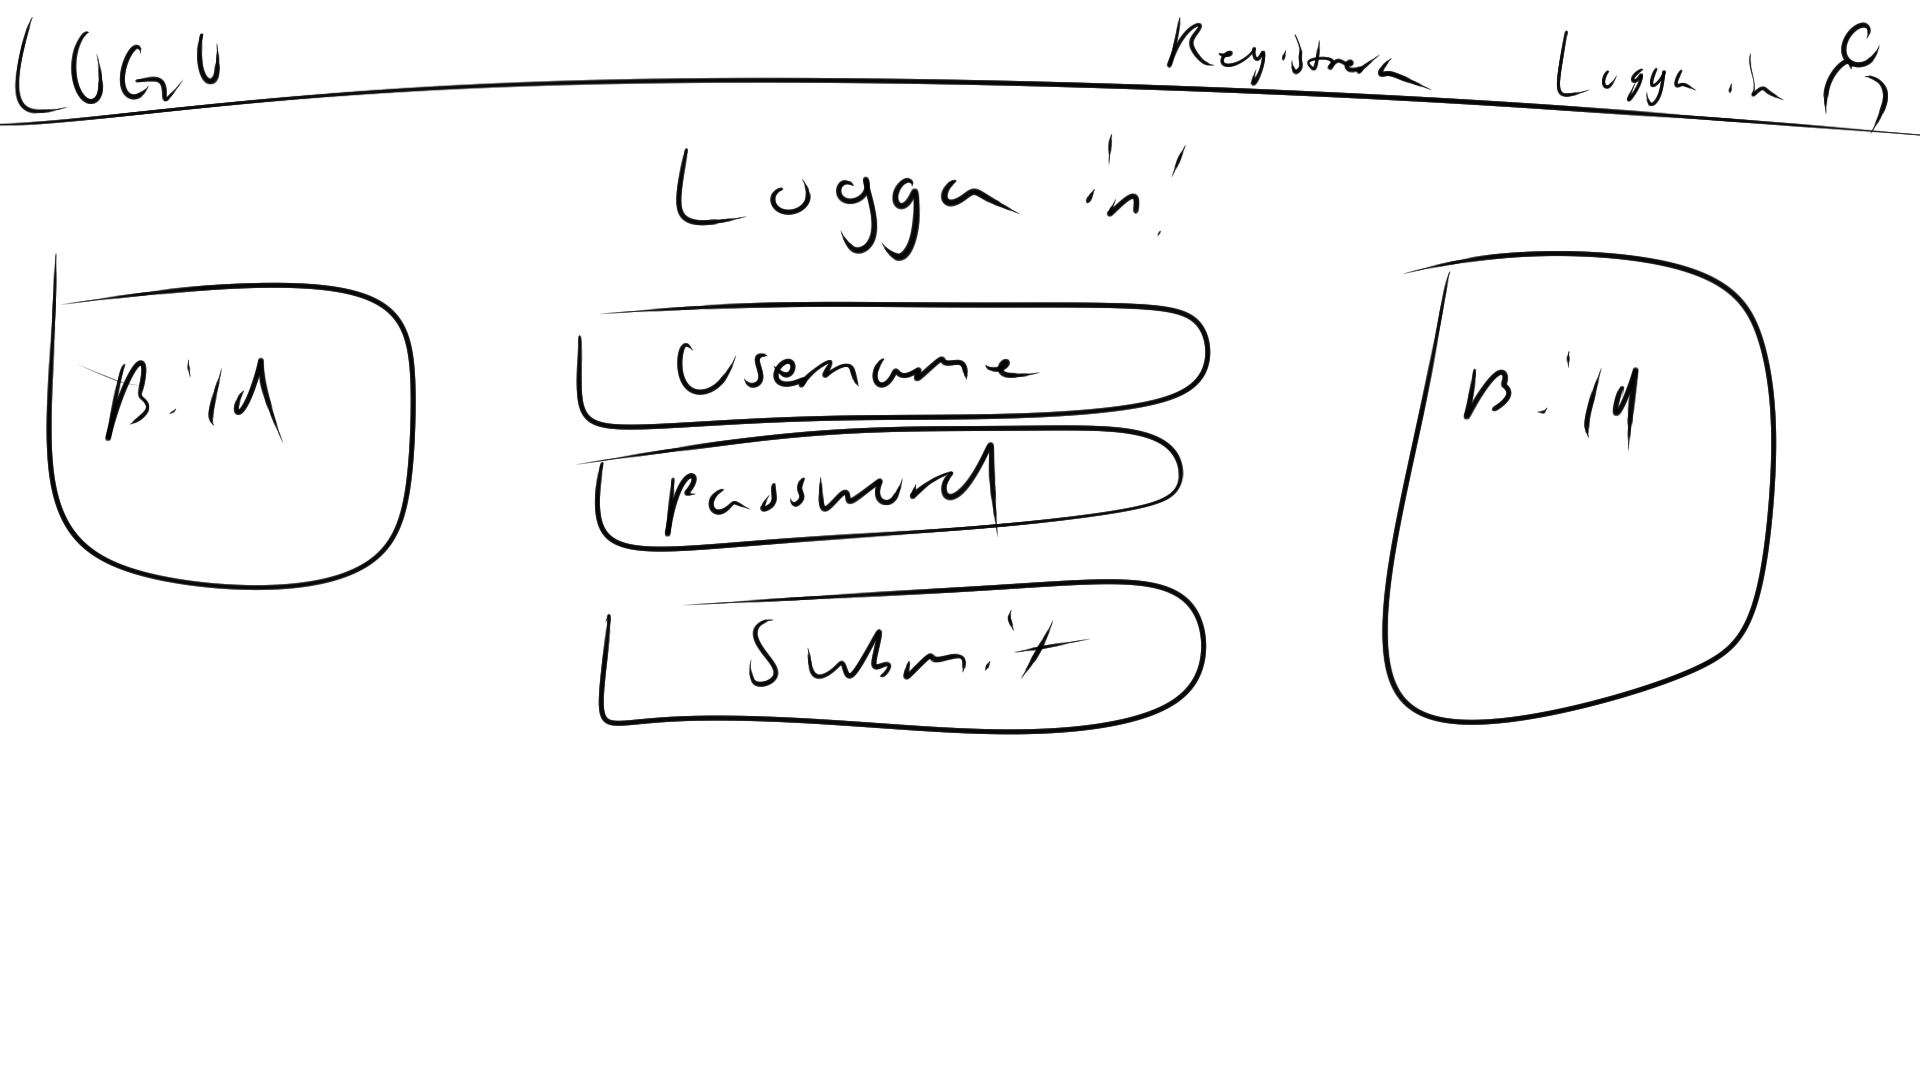 LOGO Registrera Logga in
Logga in!
Bild
Username
password
Submit
Bild